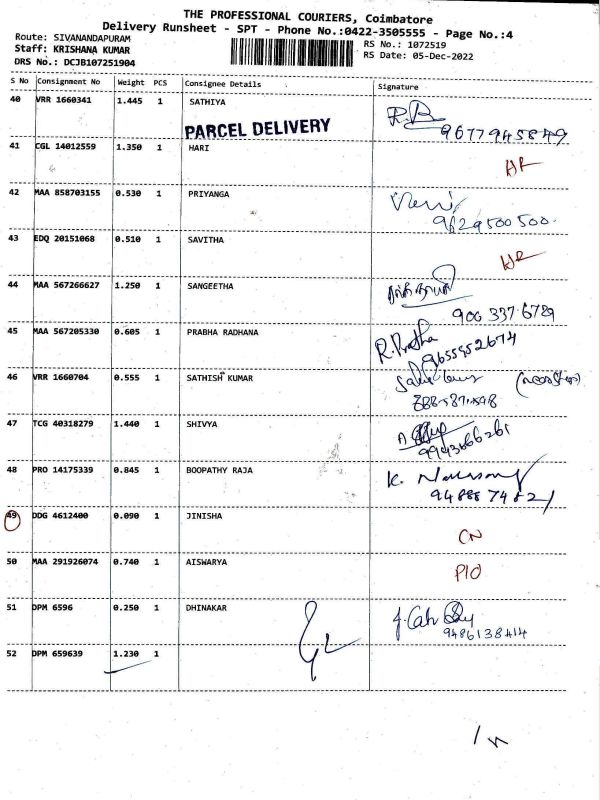 THE PROFESSIONAL COURIERS, Coimbatore
Delivery Runsheet - SPT - Phone No.:0422-3505555 - Page No.:4
Route: SIVANANDAPURAM
Staff: KRISHANA KUMAR
DRS No.: DCJB107251904
RS No.: 1072519
RS Date: 05-Dec-2022
S No Consignment No Weight PCS Consignee Details Signature
40 VRR 1660341 1.445 1 SATHIYA R.B
PARCEL DELIVERY 9677945849
41 CGL 14012559 1.350 1 HARI
42 MAA 858703155 0.530 1 PRIYANGA
9629500500.
43 EDQ 20151068 0.510 1 SAVITHA
44 MAA 567266627 1.250 1 SANGEETHA
900 337 6789
45 MAA 567205330 0.605 1 PRABHA RADHANA
9655552674
46 VRR 1660704 0.555 1 SATHISH KUMAR
47 TCG 40318279 1.440 1 SHIVYA
9943666261
48 PRO 14175339 0.845 1 BOOPATHY RAJA
49 DDG 4612400 0.090 1 JINISHA CN
50 MAA 291926074 0.740 1 AISWARYA P10
51 DPM 6596 0.250 1 DHINAKAR
9486138414
52 DPM 659639 1.230 1